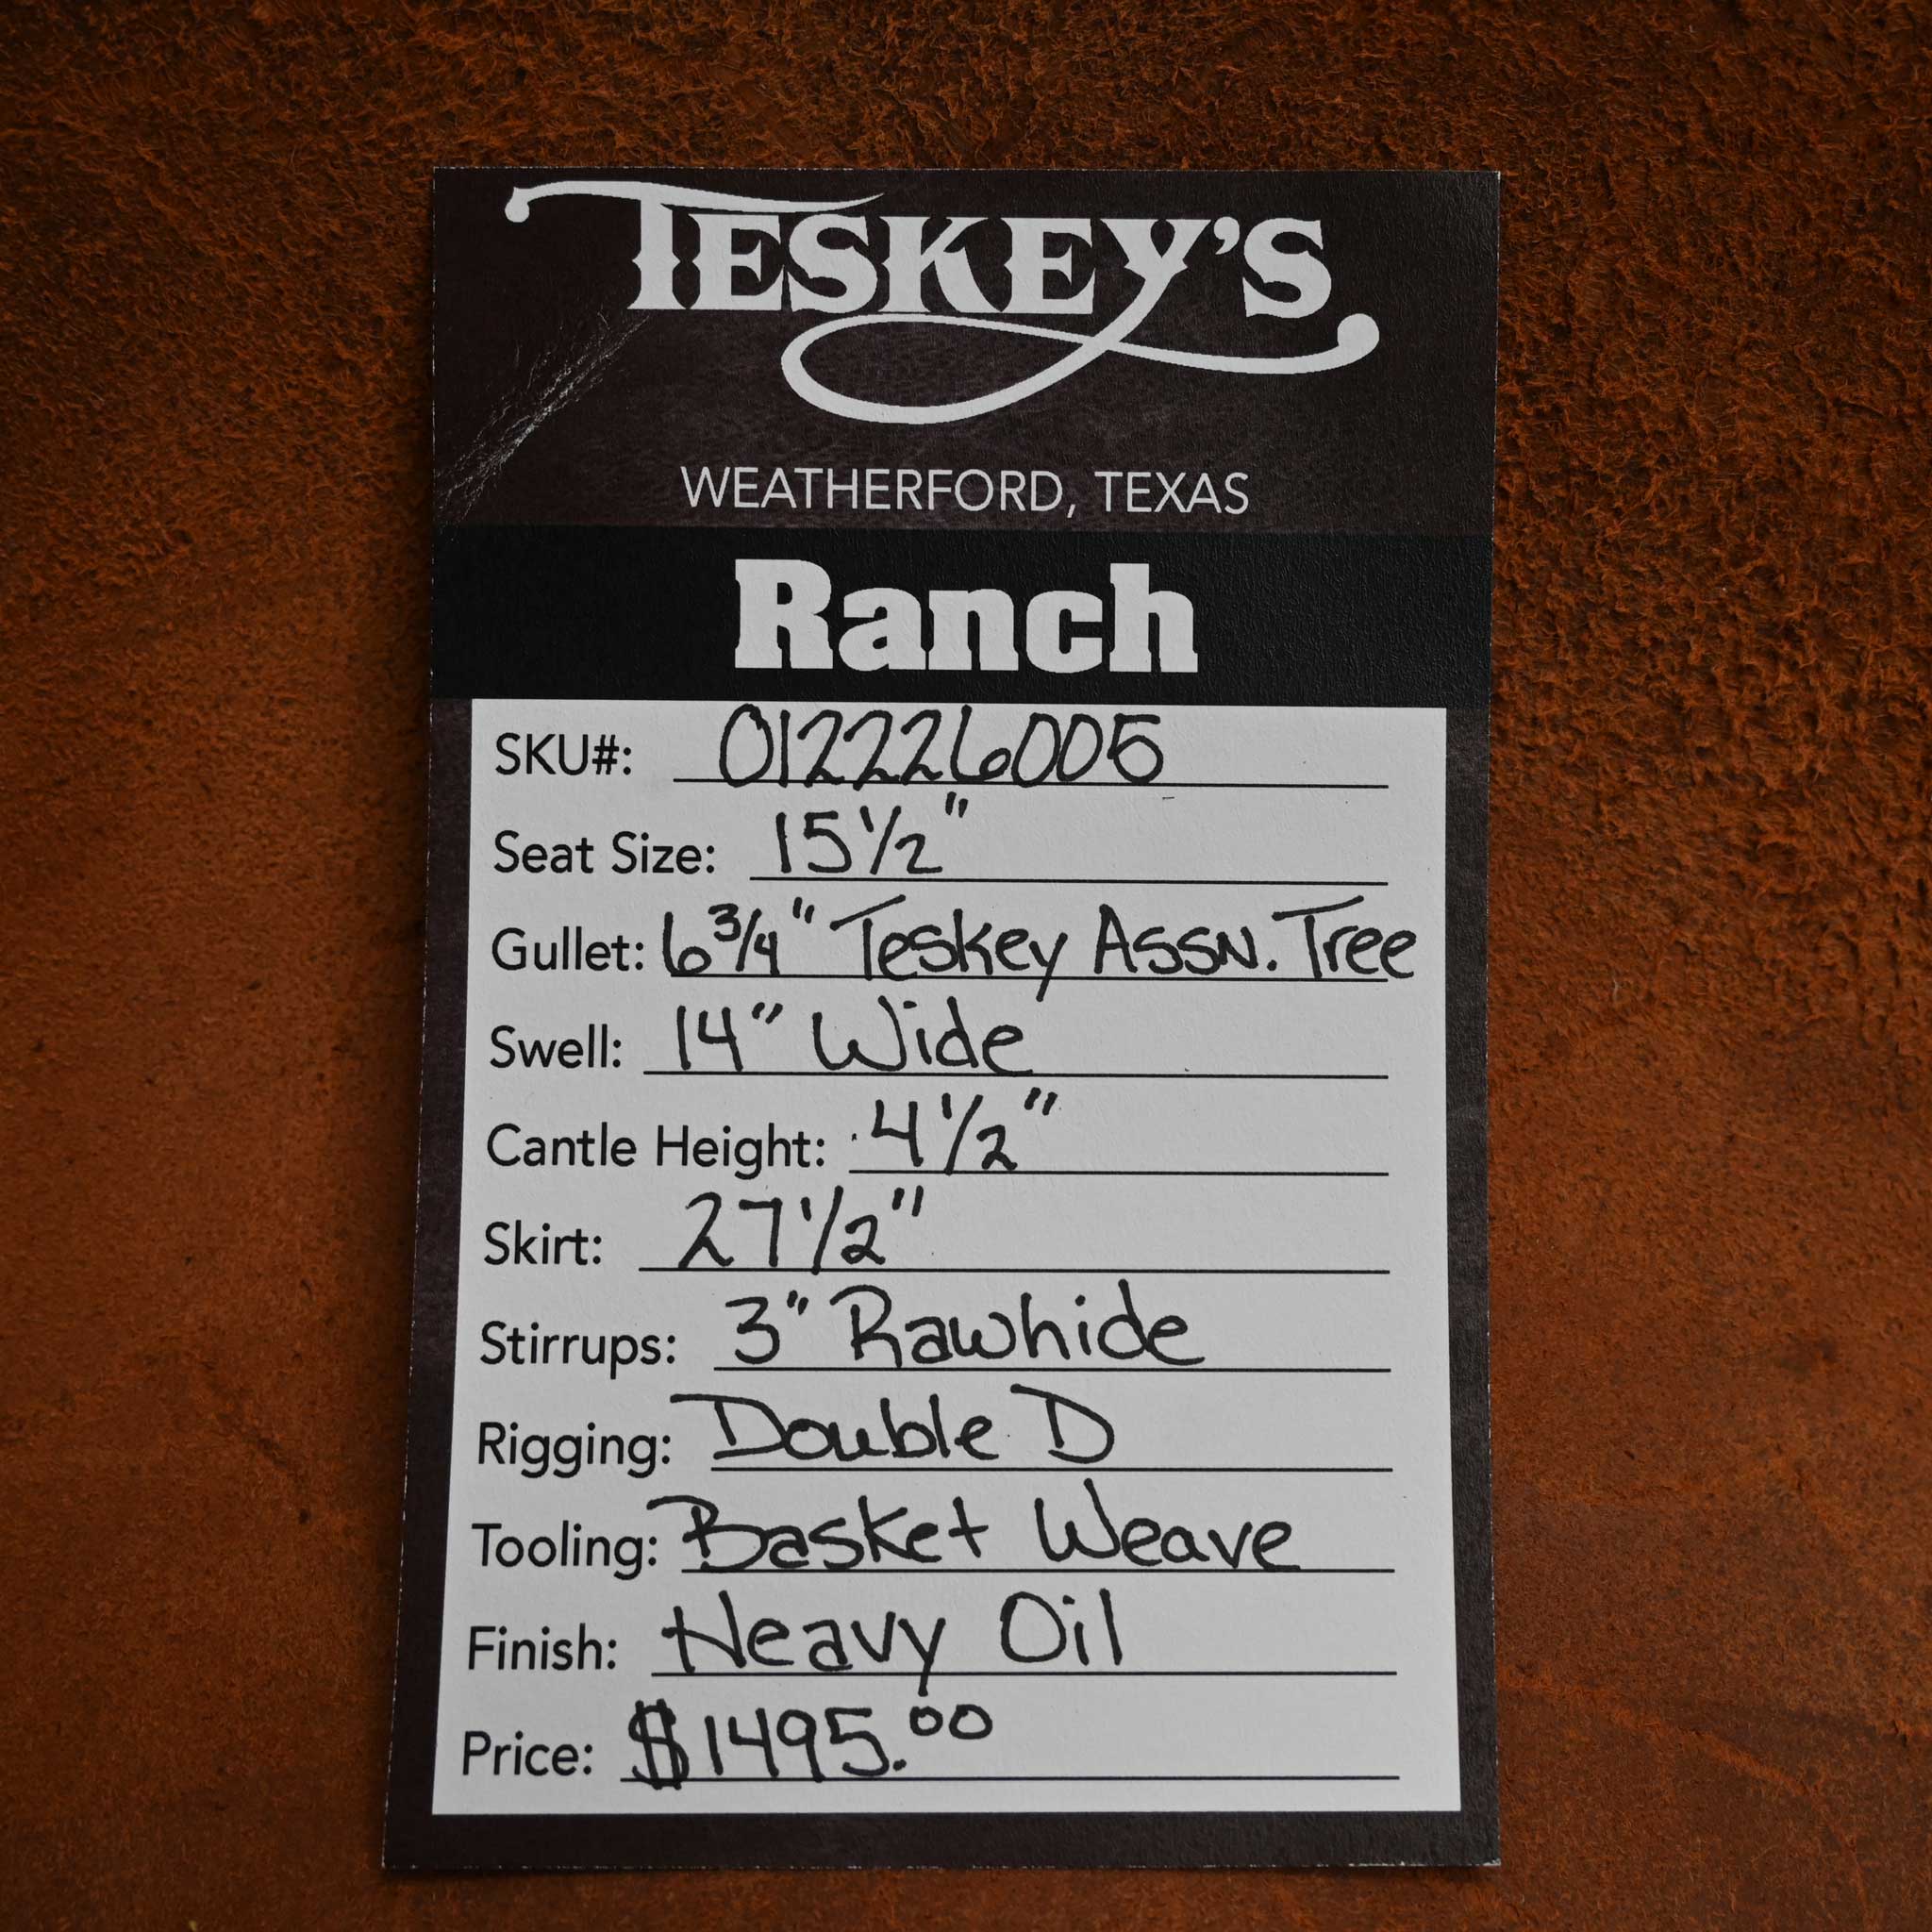 TESKEY'S
WEATHERFORD, TEXAS
Ranch
SKU#: 012226005
Seat Size: 15 1/2"
Gullet: 6 3/4" Teskey Assn. Tree
Swell: 14" Wide
Cantle Height: 4 1/2"
Skirt: 27 1/2"
Stirrups: 3" Rawhide
Rigging: Double D
Tooling: Basket Weave
Finish: Heavy Oil
Price: $1495.00